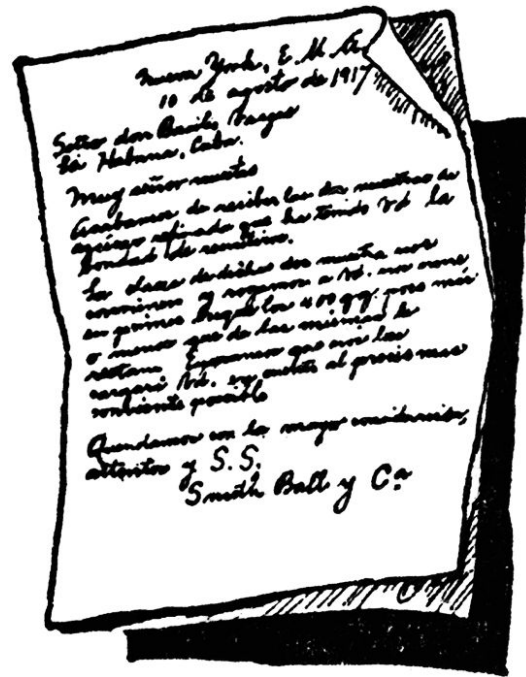 Nueva York, E. U. A.
10 de agosto de 1917
Señor don Basilio Vargas
La Habana, Cuba.
Muy señor nuestro
Acabamos de recibir las dos muestras de
azúcar refinado que ha tenido Vd la
bondad de remitirnos.
La clase de dicha dos muestra nos
conviene y rogamos a Vd. nos
en primer lugar los 400 qq. poco más
o menos que de las mismas le
restan. Esperamos que nos las
cargará Vd. en cuenta al precio mas
conveniente posible
Quedamos con la mayor consideración,
atentos y S. S.
Smith Ball y Cª